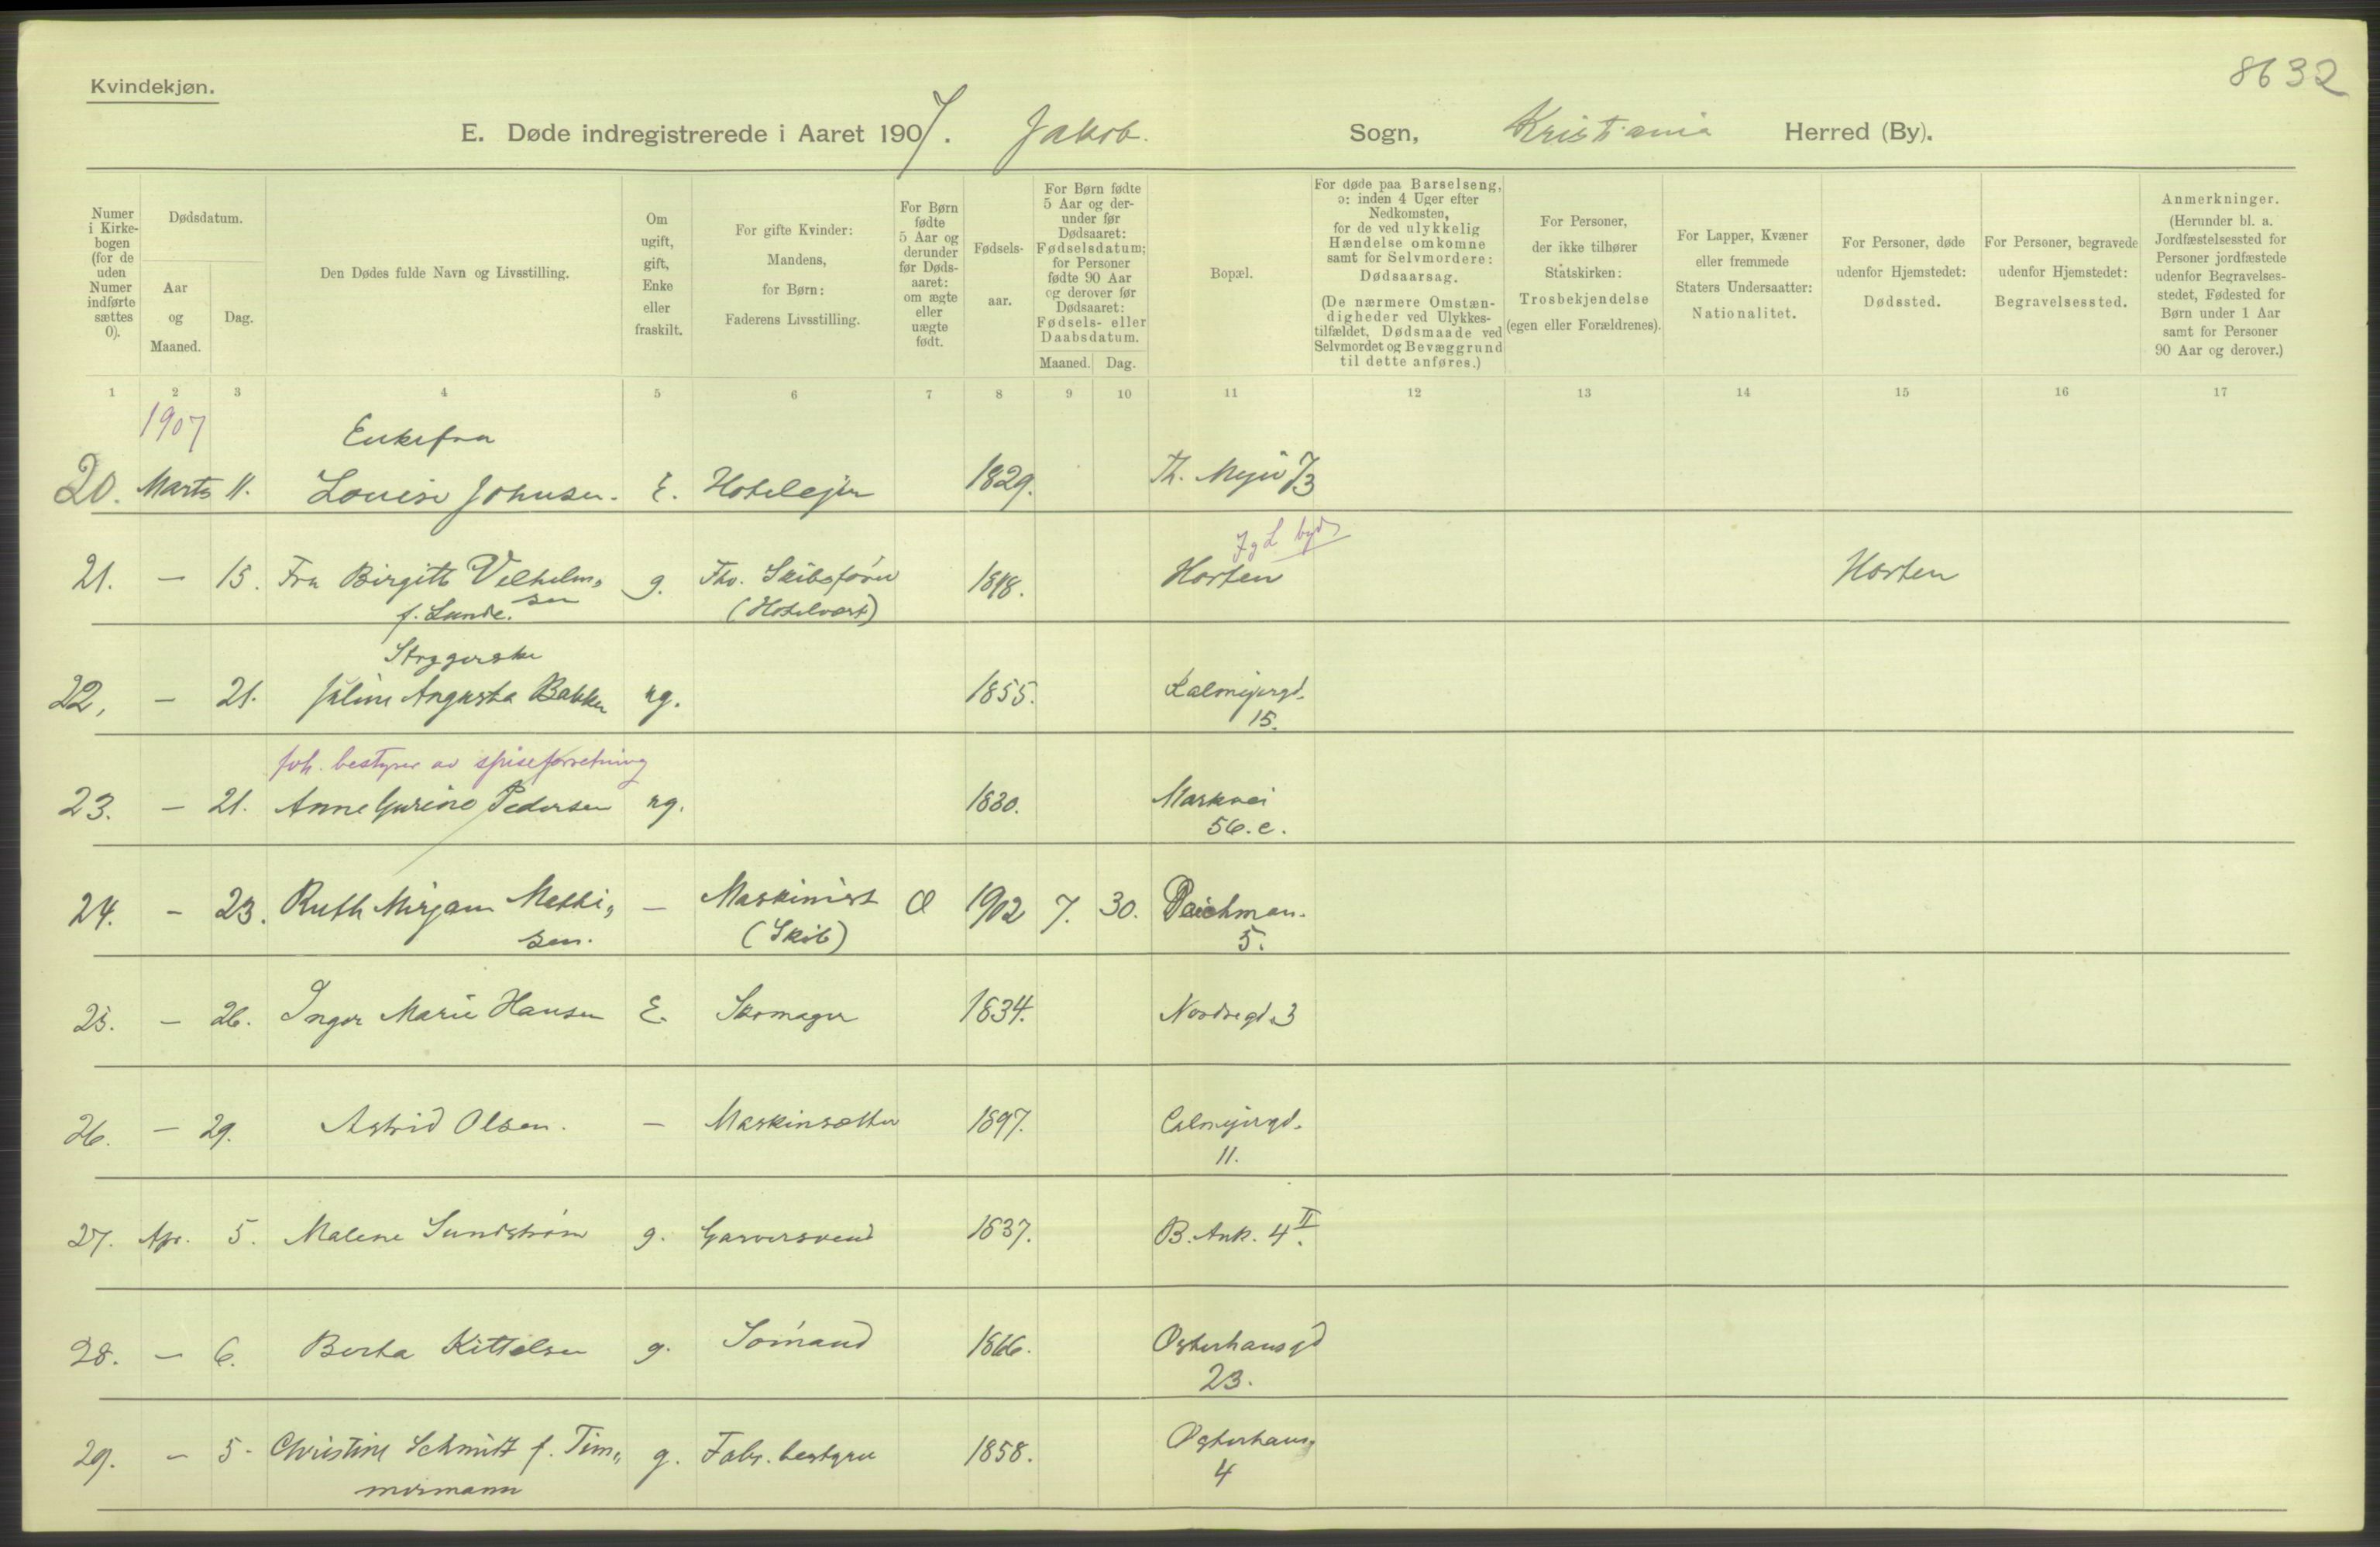 8632
Kvindekjøn.
E. Døde indregistrerede i Aaret 1907. Jakob. Sogn, Kristiania Herred (By).
Numer i Kirke-bogen (for de uden Numer indførte sættes 0).
Dødsdatum.
Aar og Maaned.
Dag.
Den Dødes fulde Navn og Livsstilling.
Om ugift, gift, Enke eller fraskilt.
For gifte Kvinder: Mandens, for Børn: Faderens Livsstilling.
For Børn fødte 5 Aar og derunder før Døds-aaret: om ægte eller uægte født.
Fødsels-aar.
For Børn fødte 5 Aar og der-under før Dødsaaret: Fødselsdatum; for Personer fødte 90 Aar og derover før Dødsaaret: Fødsels- eller Daabsdatum.
Maaned. Dag.
Bopæl.
For døde paa Barselseng, ɔ: inden 4 Uger efter Nedkomsten, for de ved ulykkelig Hændelse omkomne samt for Selvmordere: Dødsaarsag.
(De nærmere Omstæn-digheder ved Ulykkes-tilfældet, Dødsmaade ved Selvmordet og Bevæggrund til dette anføres.)
For Personer, der ikke tilhører Statskirken: Trosbekjendelse (egen eller Forældrenes).
For Lapper, Kvæner eller fremmede Staters Undersaatter: Nationalitet.
For Personer, døde udenfor Hjemstedet: Dødssted.
For Personer, begravede udenfor Hjemstedet: Begravelsessted.
Anmerkninger.
(Herunder bl. a. Jordfæstelsessted for Personer jordfæstede udenfor Begravelses-stedet, Fødested for Børn under 1 Aar samt for Personer 90 Aar og derover.)
1 2 3 4 5 6 7 8 9 10 11 12 13 14 15 16 17
1907 Enkefru
20. Marts 11. Louise Johnsen. E. Hotelejer 1829. Th. Meyer 7/3
21. – 15. Fru Birgitte Velhelm- g. Fhv. Skibsfører Horten Horten
sen f. Lunde. (Hotelvært)
Strygerske
22, – 21. Juline Augusta Bakken ug. 1855. Kalmeyergd.
15.
fvh. bestyrer av spiseforretning
23. – 21. Anne Gurine Pedersen ug. 1830. Markvei
56. c.
24. – 23. Ruth Mirjam Mathi- – Maskinist 1902 7. 30. Deichman.
sen. (Skib) 5.
25. – 26. Inger Marie Hansen E. Skomager 1834. Nordregd 3
26. – 29. Astrid Olsen. – Maskinsætter 1897. Calmeyergd.
11.
27. Apr. 5. Malene Sundstrøm g. Garversvend 1837. B. Ank. 4 II.
28. – 6. Berta Kittelsen g. Sømand 1866. Osterhausgd
23.
29. – 5. Christine Schmidt f. Tim- g. Fabr. bestyrer 1858. Osterhaus,
mermann 4